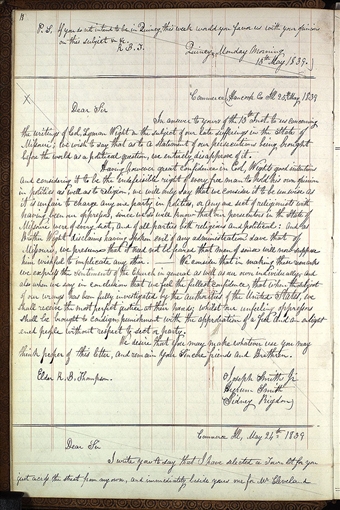 11
P.S. If you do not intend to be in Quincy this week would you favor us with your opinion
on this subject &c
R. B. T.
Quincy, Monday Morning,
13th May 1839.
Commerce, Hancock Co Ill. 25th May 1839
Dear Sir
In answer to yours of the 13th Inst. to us concerning
the writings of Col. Lyman Wight on the subject of our late sufferings in the State of
Missouri; we wish to say that as to a statement of our persecutions being brought
before the world as a political question, we entirely disapprove of it.
Having however great confidence in Col. Wight's good intentions
and considering it to be the indefeasible right of every free man to hold his own opinion
in politics as well as to religion, we will only say that we consider it to be unwise as
it is unfair to charge any one party in politics, or any one sect of religionists with
having been our oppressors, since we so well know that our persecutors in the State of
Missouri were of every sect, and of all parties both religious and political; and as
Brother Wight disclaims having spoken evil of any administration save that of
Missouri, we presume that it need not be feared that men of sense will now suppose
him wishful to implicate any other.
We consider that in making these remarks
we express the sentiments of the Church in general as well as our own individually, and
also when we say in conclusion that we feel the fullest confidence, that when the subject
of our wrongs has been fully investigated by the authorities of the United States, we
shall receive the most perfect justice at their hands; whilst our unfeeling oppressors
shall be brought to condign punishment with the approbation of a free and an enlight-
ened people without respect to sect or party.
We desire that you may make whatever use you may
think proper of this letter, and remain your sincere friends and Brethren.
Joseph Smith Jr
Elder R. B. Thompson.
Hyrum Smith
Sidney Rigdon
Commerce Ill, May 24th 1839
Dear Sir
I write you to say that I have selected a Town Lot for you
just across the street from my own, and immediately beside yours one for Mr Cleveland